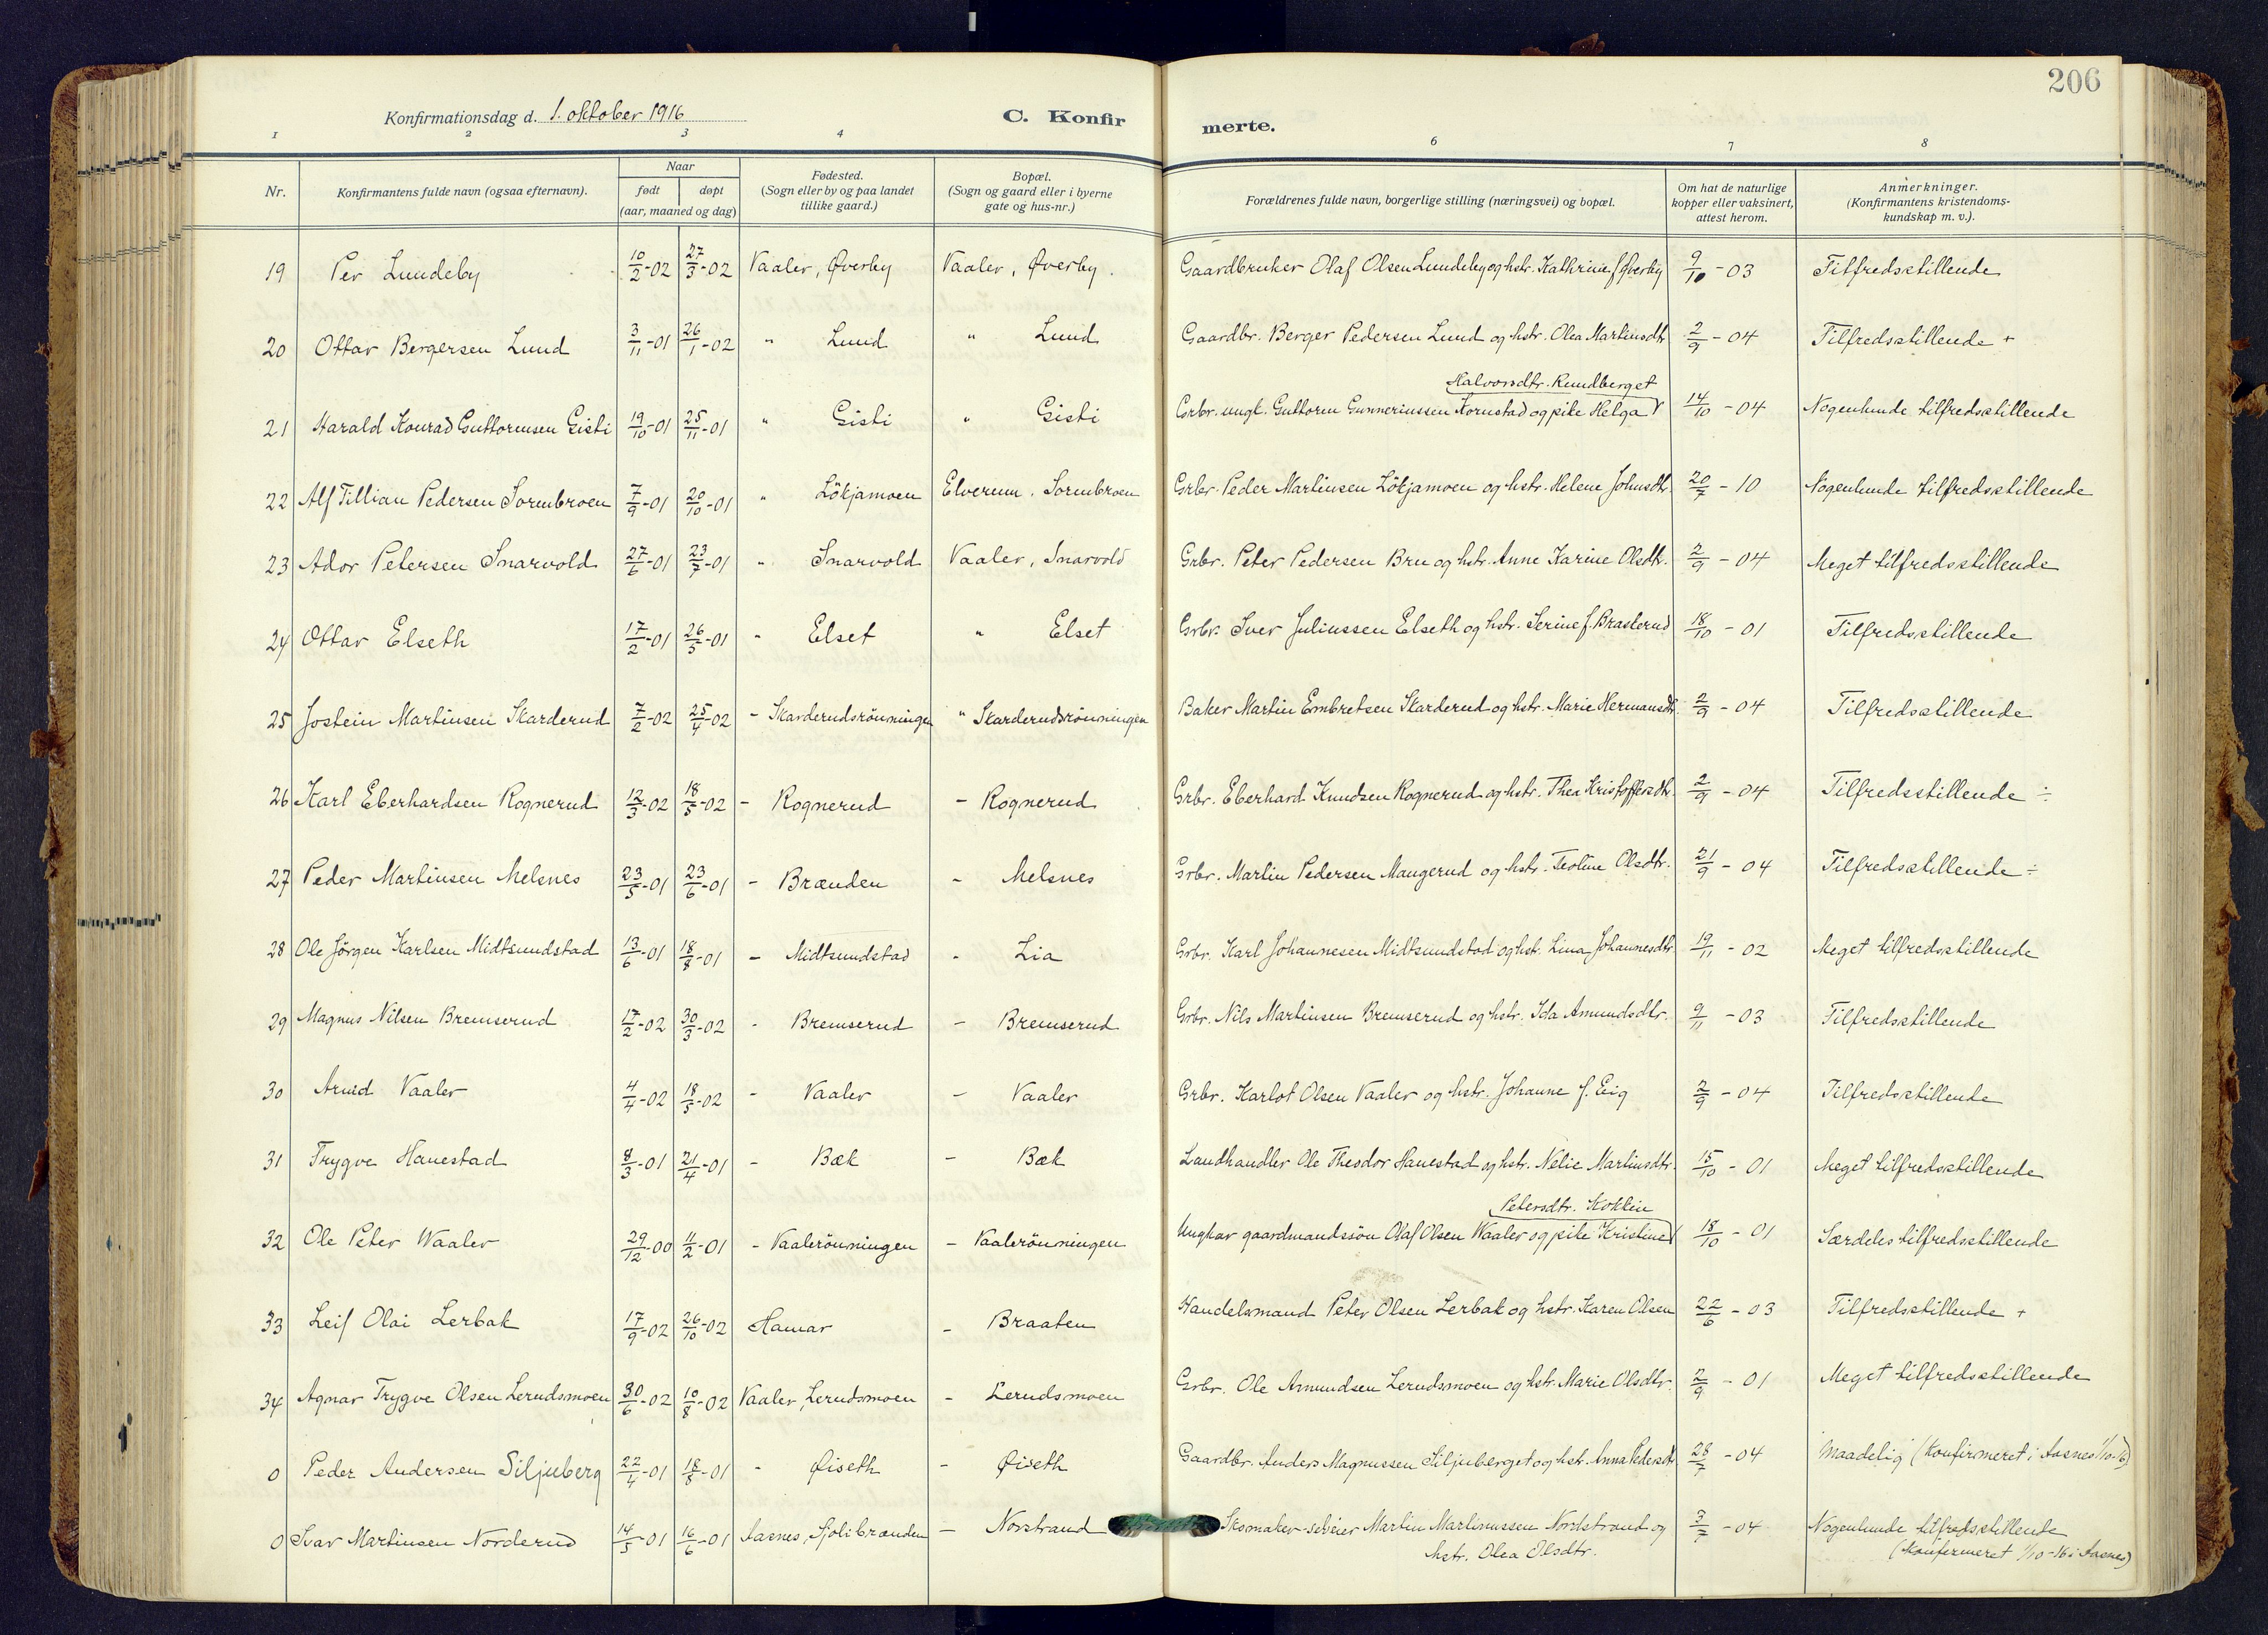 206
Konfirmationsdag d. 1. oktober 1916
C. Konfirmerte.
1 2 3 4 6 7 8
Nr. Konfirmantens fulde navn (ogsaa efternavn). Naar født døpt (aar, maaned og dag) Fødested. (Sogn eller by og paa landet tillike gaard.) Bopæl. (Sogn og gaard eller i byerne gate og hus-nr.) Forældrenes fulde navn, borgerlige stilling (næringsvei) og bopæl. Om hat de naturlige kopper eller vaksinert, attest herom. Anmerkninger. (Konfirmantens kristendoms-kundskap m. v.).
19 Per Lundeby 10/2-02 27/3-02 Vaaler, Øverby Vaaler, Øverby. Gaardbruker Olaf Olsen Lundeby og hstr. Kathrine f. Øverby 9/10-03 Tilfredsstillende
20 Ottar Bergersen Lund 3/11-01 26/1-02 " Lund " Lund Gaardbr. Berger Pedersen Lund og hstr. Olea Martinsdtr 2/9-04 Tilfredsstillende +
21 Harald Konrad Guttormsen Gisti 19/10-01 25/11-01 " Gisti " Gisti Grbr. ungk. Guttorm Gunneriussen Kornstad og pike Helga Halvorsdtr. Rundberget 14/10-04 Nogenlunde tilfredsstillende
22 Alf Tillian Pedersen Sormbroen 7/9-01 20/10-01 " Lökjamoen Elverum, Sormbroen Grbr. Peder Martinsen Lökjamoen og hstr. Helene Johnsdtr. 20/7-10 Nogenlunde tilfredsstillende
23 Ador Petersen Snarvold 27/6-01 23/7-01 " Snarvold Vaaler, Snarvold Grbr. Peter Pedersen Bru og hstr. Anne Karine Olsdtr. 2/9-04 Meget tilfredsstillende
24 Ottar Elseth 17/2-01 26/5-01 " Elset " Elset Grbr. Iver Juliussen Elseth og hstr. Serine f. Brasterud 18/10-01 Tilfredsstillende
25 Jostein Martinsen Skarderud 7/2-02 25/4-02 - Skarderudsrönningen " Skarderudsrönningen Baker Martin Embretsen Skarderud og hstr. Marie Hermansdtr. 2/9-04 Tilfredsstillende
26 Karl Eberhardsen Rognerud 12/3-02 18/5-02 - Rognerud - Rognerud Grbr. Eberhard Knudsen Rognerud og hstr. Thea Kristoffersdtr. 2/9-04 Tilfredsstillende ÷
27 Peder Martinsen Melsnes 23/5-01 23/6-01 - Brænden - Melsnes Grbr. Martin Pedersen Maugerud og hstr. Teoline Olsdtr. 21/9-04 Tilfredsstillende ÷
28 Ole Jörgen Karlsen Midtsundstad 13/6-01 18/8-01 - Midtsundstad - Lia Grbr. Karl Johannesen Midtsundstad og hstr. Lina Johannesdtr. 19/11-02 Meget tilfredsstillende
29 Magnus Nilsen Bremserud 17/2-02 30/3-02 - Bremserud - Bremserud Grbr. Nils Martinsen Bremserud og hstr. Ida Amundsdtr. 9/11-03 Tilfredsstillende
30 Arvid Vaaler 4/4-02 18/5-02 - Vaaler - Vaaler Grbr. Karlot Olsen Vaaler og hstr. Johanne f. Eig 2/9-04 Tilfredsstillende
31 Trygve Hanestad 8/3-01 21/4-01 - Bæk - Bæk Landhandler Ole Theodor Hanestad og hstr. Nelie Martinsdtr. 15/10-01 Meget tilfredsstillende
32 Ole Peter Waaler 29/12-00 11/2-01 - Vaalerönningen - Vaalerönningen Ungkar gaardmandssön Olaf Olsen Waaler og pike Kristine Petersdtr. Kokkin 18/10-01 Særdeles tilfredsstillende
33 Leif Olai Lerbak 17/9-02 26/10-02 Hamar - Braaten Handelsmand Peter Olsen Lerbak og hstr. Karen Olsen 22/6-03 Tilfredsstillende +
34 Agnar Trygve Olsen Lerudsmoen 30/6-02 10/8-02 Vaaler, Lerudsmoen - Lerudsmoen Grbr. Ole Amundsen Lerudsmoen og hstr. Marie Olsdtr. 2/9-01 Meget tilfredsstillende
0 Peder Andersen Siljuberg 22/4-01 18/8-01 - Øiseth - Øiseth Gaardbr. Anders Magnussen Siljuberget og hstr. Anna Pedersdtr. 28/7-04 Maadelig (Konfirmeret i Aasnes 1/10-16)
0 Ivar Martinsen Norderud 14/5-01 16/6-01 Aasnes, Sjolibrænden - Norstrand Skomaker-selveier Martin Martinussen Nordstrand og hstr. Olea Olsdtr. 3/7-04 Nogenlunde tilfredsstillende (Konfirmeret 1/10-16 i Aasnes)